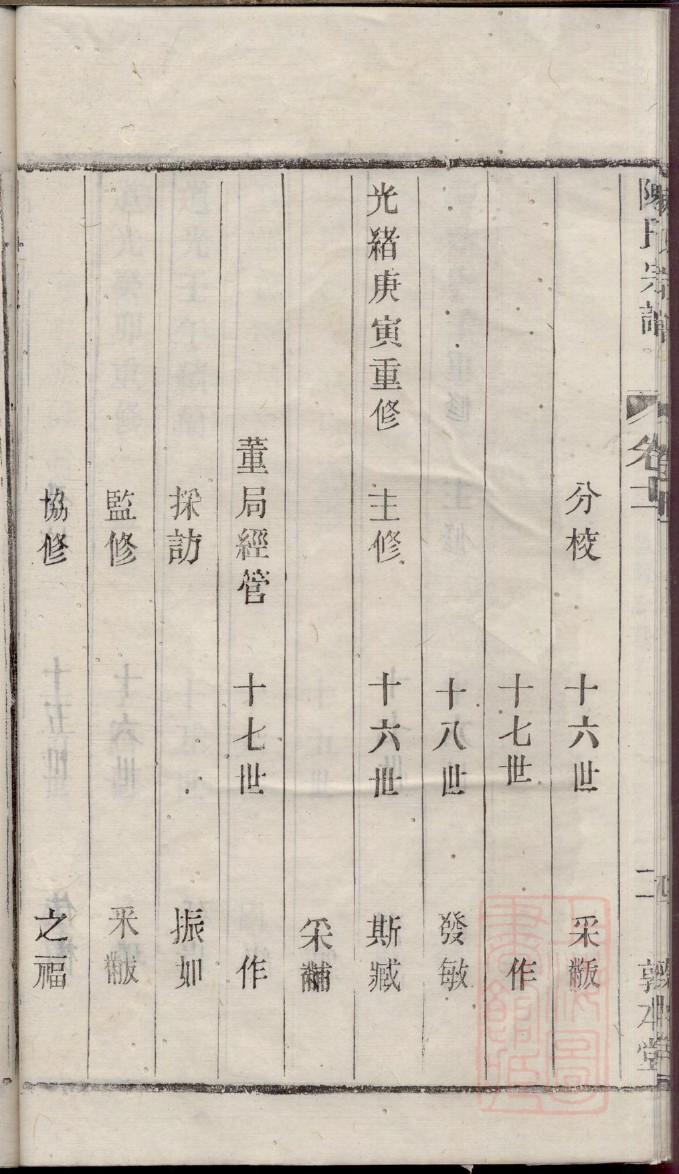 陳氏宗譜 卷 二 敦本堂
分校 十六世 采黻
十七世 作
十八世 發敏
光緒庚寅重修 主修 十六世 斯臧
采黼
董局經管 十七世 作
採訪 振如
監修 采黻
協修 之福